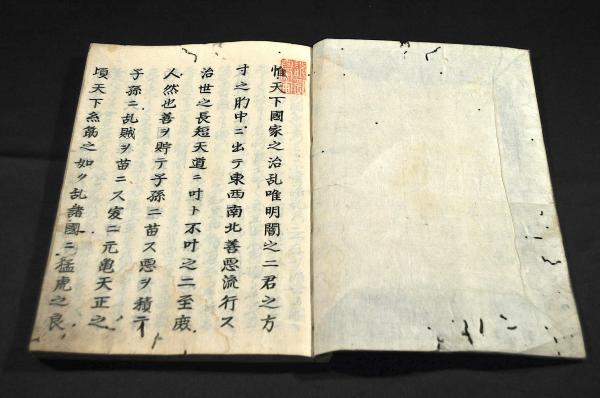 惟天下國家之治乱唯明闇之二君之方
寸之胸中ニ出テ東西南北善悪流行ス
治世之長短天道ニ叶ト不叶之二至蔵
人然也善ヲ貯テ子孫ニ苗ス悪ヲ積テ
子孫ニ乱賊ヲ苗ニス爰ニ元亀天正之
頃天下糸筋之如ク乱諸國ニ猛虎之良